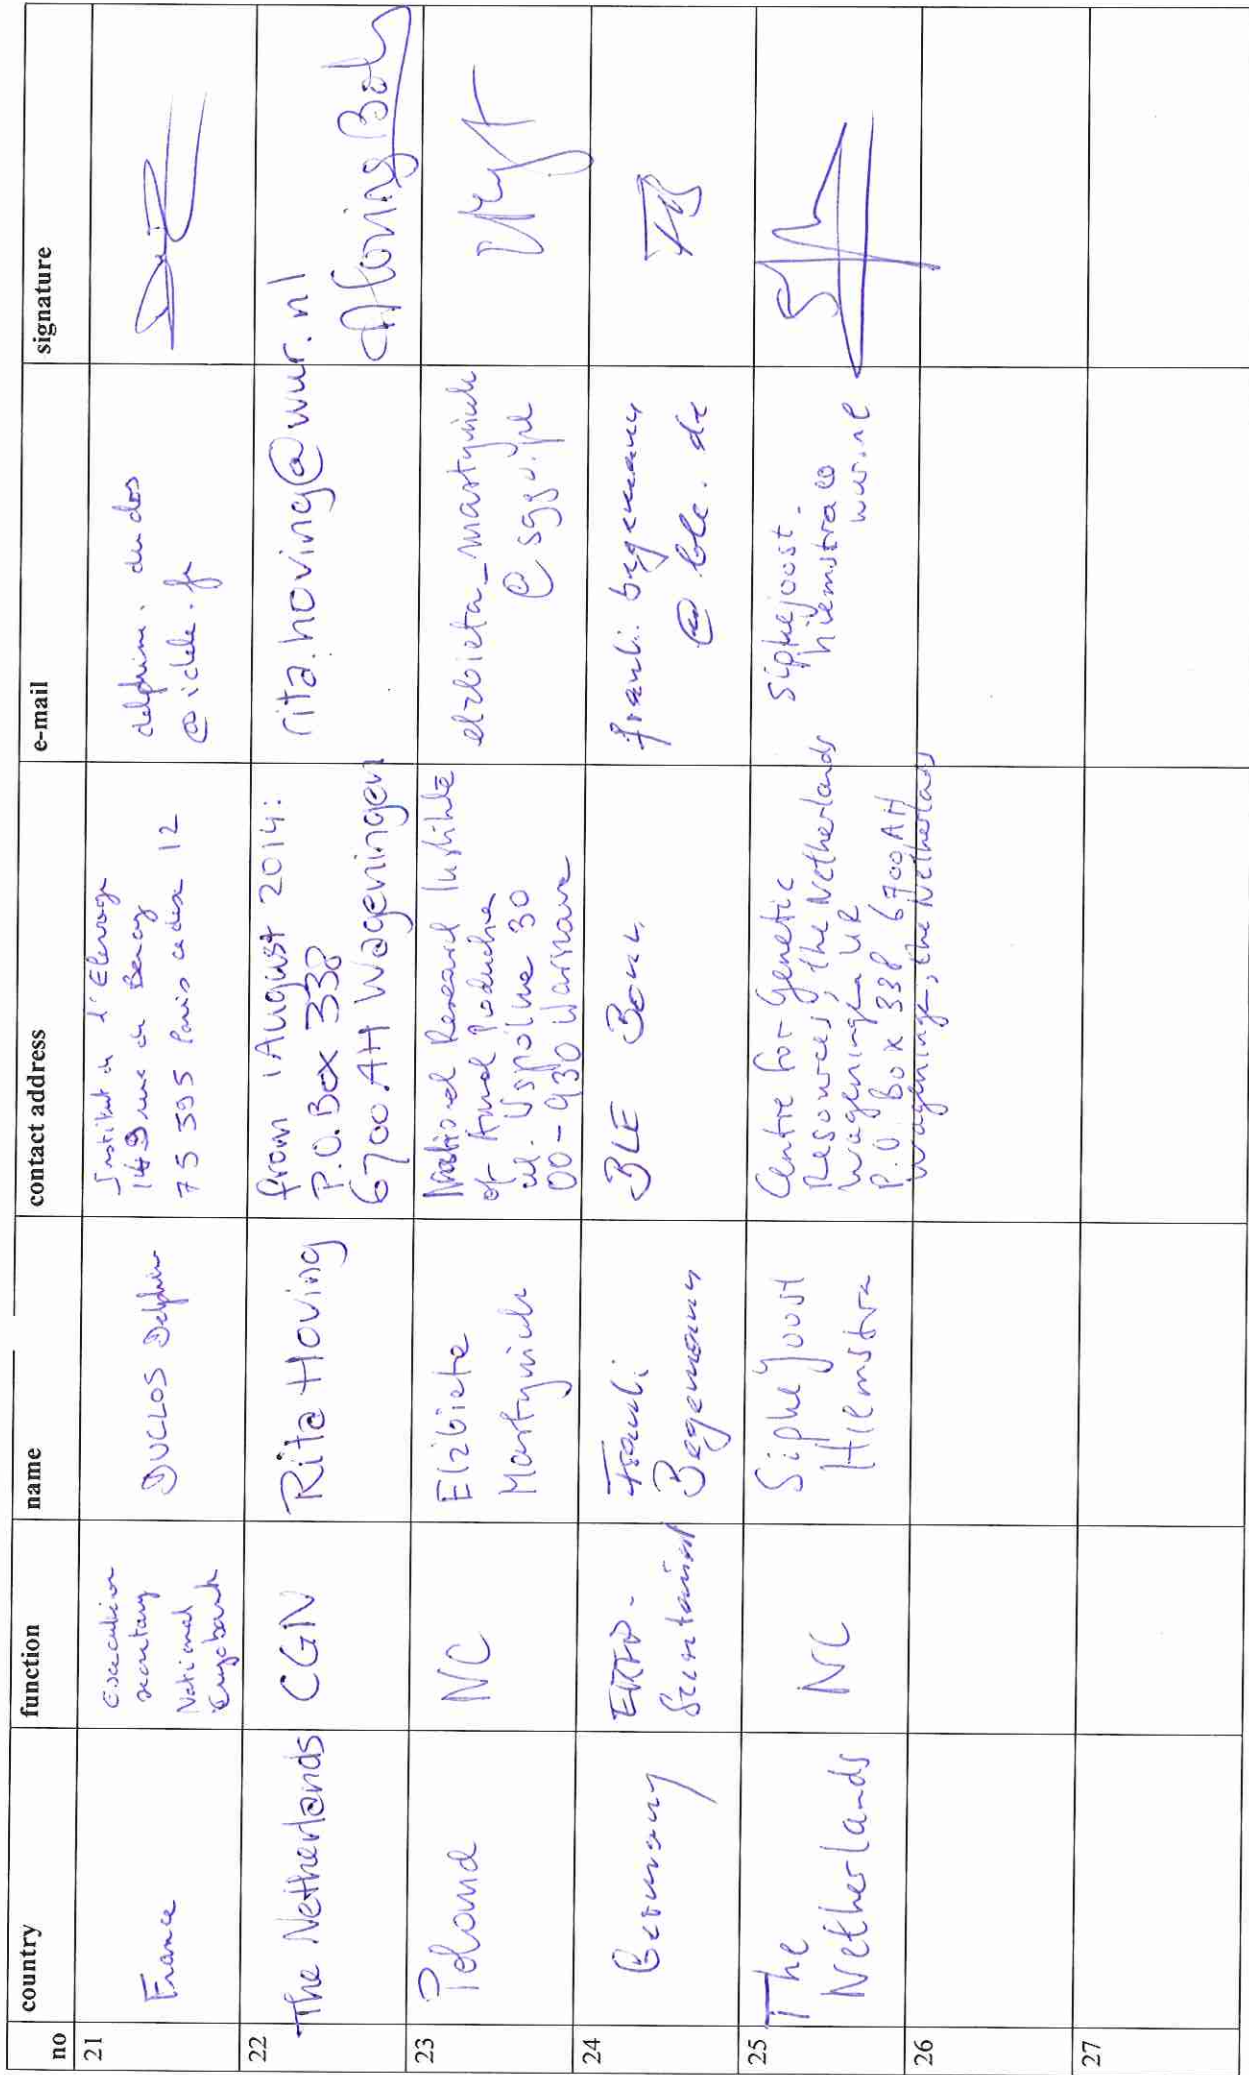 no country function name contact address e-mail signature
21 France
Executive
secretary
National
Cryobank
DUCLOS Delphine
Institut de l'Elevage
149 rue de Bercy
75 595 Paris cedex 12
delphine.duclos
@idele.fr
22 The Netherlands
CGN
Rita Hoving
from 1 August 2014:
P.O. Box 338
6700 AH Wageningen
rita.hoving@wur.nl
AHoving Bol
23 Poland
NC
Elzbieta
Martyniuk
National Research Institute
of Animal Production
ul. Wspolna 30
00-930 Warsaw
elzbieta_martyniuk
@sggw.pl
24 Germany
ERFP-
Secretariat
Frank
Begemann
BLE Bonn
frank.begemann
@ble.de
FB
25 The
Netherlands
NC
Sipke Joost
Hiemstra
Centre for Genetic
Resources, the Netherlands
Wageningen UR
P.O. Box 338 6700 AH
Wageningen, the Netherlands
sipkejoost.
hiemstra@
wur.nl
26
27